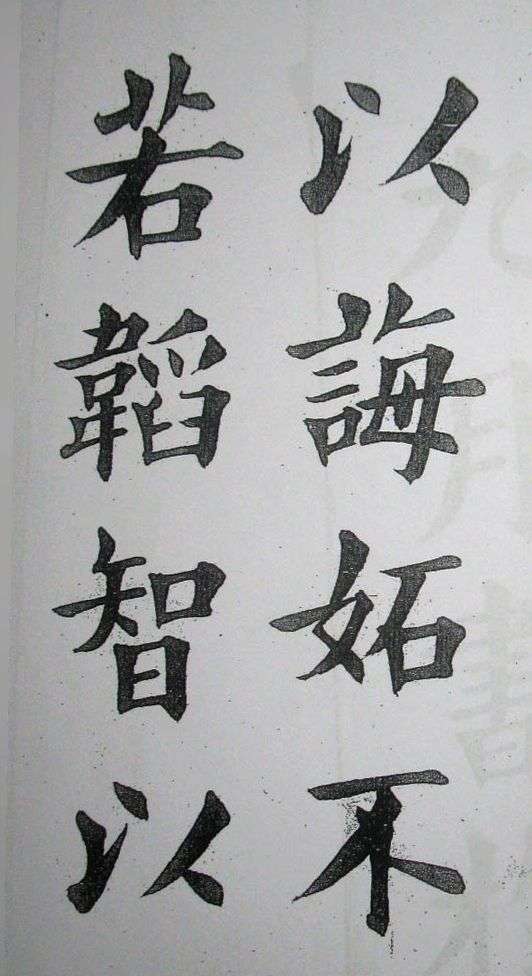 以誨妬不
若韜智以